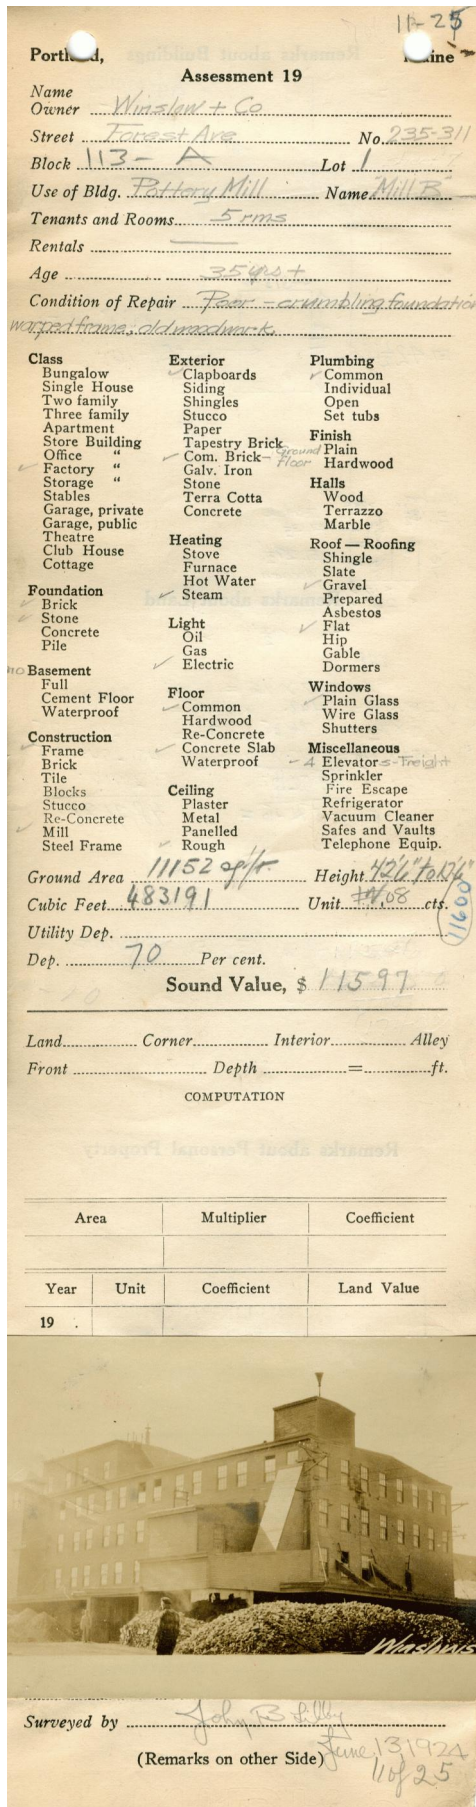 11-25
Portland, Maine
Assessment 19
Name
Owner Winslow + Co
Street Forest Ave No. 235-311
Block 113-A Lot 1
Use of Bldg. Pottery Mill Name Mill B
Tenants and Rooms 5 rms
Rentals
Age 35 yrs +
Condition of Repair Poor - crumbling foundation
warped frame, old woodwork.
Class
Bungalow
Single House
Two family
Three family
Apartment
Store Building
Office "
✓ Factory "
Storage "
Stables
Garage, private
Garage, public
Theatre
Club House
Cottage
Foundation
✓ Brick
✓ Stone
Concrete
Pile
no Basement
Full
Cement Floor
Waterproof
Construction
✓ Frame
Brick
Tile
Blocks
Stucco
Re-Concrete
✓ Mill
Steel Frame
Exterior
✓ Clapboards
Siding
Shingles
Stucco
Paper
Tapestry Brick
✓ Com. Brick - Ground Floor
Galv. Iron
Stone
Terra Cotta
Concrete
Heating
Stove
Furnace
Hot Water
✓ Steam
Light
Oil
Gas
✓ Electric
Floor
✓ Common
Hardwood
Re-Concrete
✓ Concrete Slab
Waterproof
Ceiling
Plaster
Metal
Panelled
✓ Rough
Plumbing
✓ Common
Individual
Open
Set tubs
Finish
Plain
Hardwood
Halls
Wood
Terrazzo
Marble
Roof — Roofing
Shingle
Slate
✓ Gravel
Prepared
Asbestos
✓ Flat
Hip
Gable
Dormers
Windows
✓ Plain Glass
Wire Glass
Shutters
Miscellaneous
- 4 Elevators-Freight
Sprinkler
Fire Escape
Refrigerator
Vacuum Cleaner
Safes and Vaults
Telephone Equip.
Ground Area 11152 sq/ft. Height 42'6" to 12'6"
Cubic Feet 483191 Unit .08 cts.
11600
Utility Dep.
Dep. 70 Per cent.
Sound Value, $ 11597
Land Corner Interior Alley
Front Depth = ft.
COMPUTATION
Area Multiplier Coefficient
Year Unit Coefficient Land Value
19 .
Surveyed by John B Libby
(Remarks on other Side) June 13, 1924
11 of 25